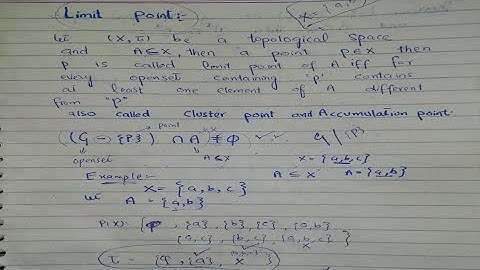 Limit point:-
X = {a,b
Let (X, τ) be a topological space
and A⊆X, then a point p∈X then
p is called limit point of A iff for
every openset containing 'p' contains
at least one element of A different
from "p"
also called Cluster point and Accumulation point.
(G - {P}) ∩ A ≠ Φ
point
openset
A⊆X
G / {P}
X = {a,b,c}
A ⊆ X A = {a,b}
Example:-
X = {a,b,c}
Let A = {a,b}
P(X): {φ, {a}, {b}, {c}, {a,b}
{a,c}, {b,c}, {a,b,c} }
X
τ = {φ, {a}, X